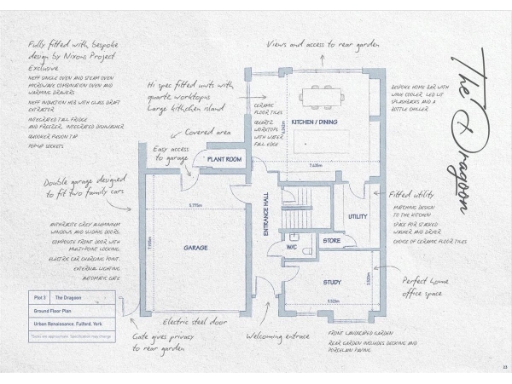 Fully fitted with bespoke
design by Nixons Project
Exclusive
NEFF SINGLE OVEN AND STEAM OVEN
MICROWAVE COMBINATION OVEN AND
WARMING DRAWERS
NEFF INDUCTION HOB WITH GLASS DRAFT
EXTRACTOR
INTEGRATED TALL FRIDGE
AND FREEZER, INTEGRATED DISHWASHER
QUOOKER FUSION TAP
POP UP SOCKETS
Views and access to rear garden
Hi spec fitted units with
quartz worktops
Large kitchen island
Covered area
Easy access
to garage
PLANT ROOM
CERAMIC
FLOOR TILES
QUARTZ
WORKTOPS
WITH WATER
FALL EDGE
KITCHEN / DINING
BESPOKE HOME BAR WITH
WINE COOLER, LED LIT
SPLASHBACKS AND A
BOTTLE CHILLER
The Dragoon
Double garage designed
to fit two family cars
ANTHRACITE GREY ALUMINIUM
WINDOWS AND SLIDING DOORS.
COMPOSITE FRONT DOOR WITH
MULTI-POINT LOCKING.
ELECTRIC CAR CHARGING POINT.
EXTERNAL LIGHTING
GARAGE
ENTRANCE HALL
UTILITY
Fitted utility
MATCHING DESIGN
TO THE KITCHEN
SPACE FOR STACKED
WASHER AND DRYER
CHOICE OF CERAMIC FLOOR TILES
WC
STORE
STUDY
Perfect home
office space
Plot 3 The Dragoon
Ground Floor Plan
Urban Renaissance, Fulford, York
Electric steel door
Gate gives privacy
to rear garden
Welcoming entrance
FRONT LANDSCAPED GARDEN
REAR GARDEN INCLUDES DECKING AND
PORCELAIN PAVING